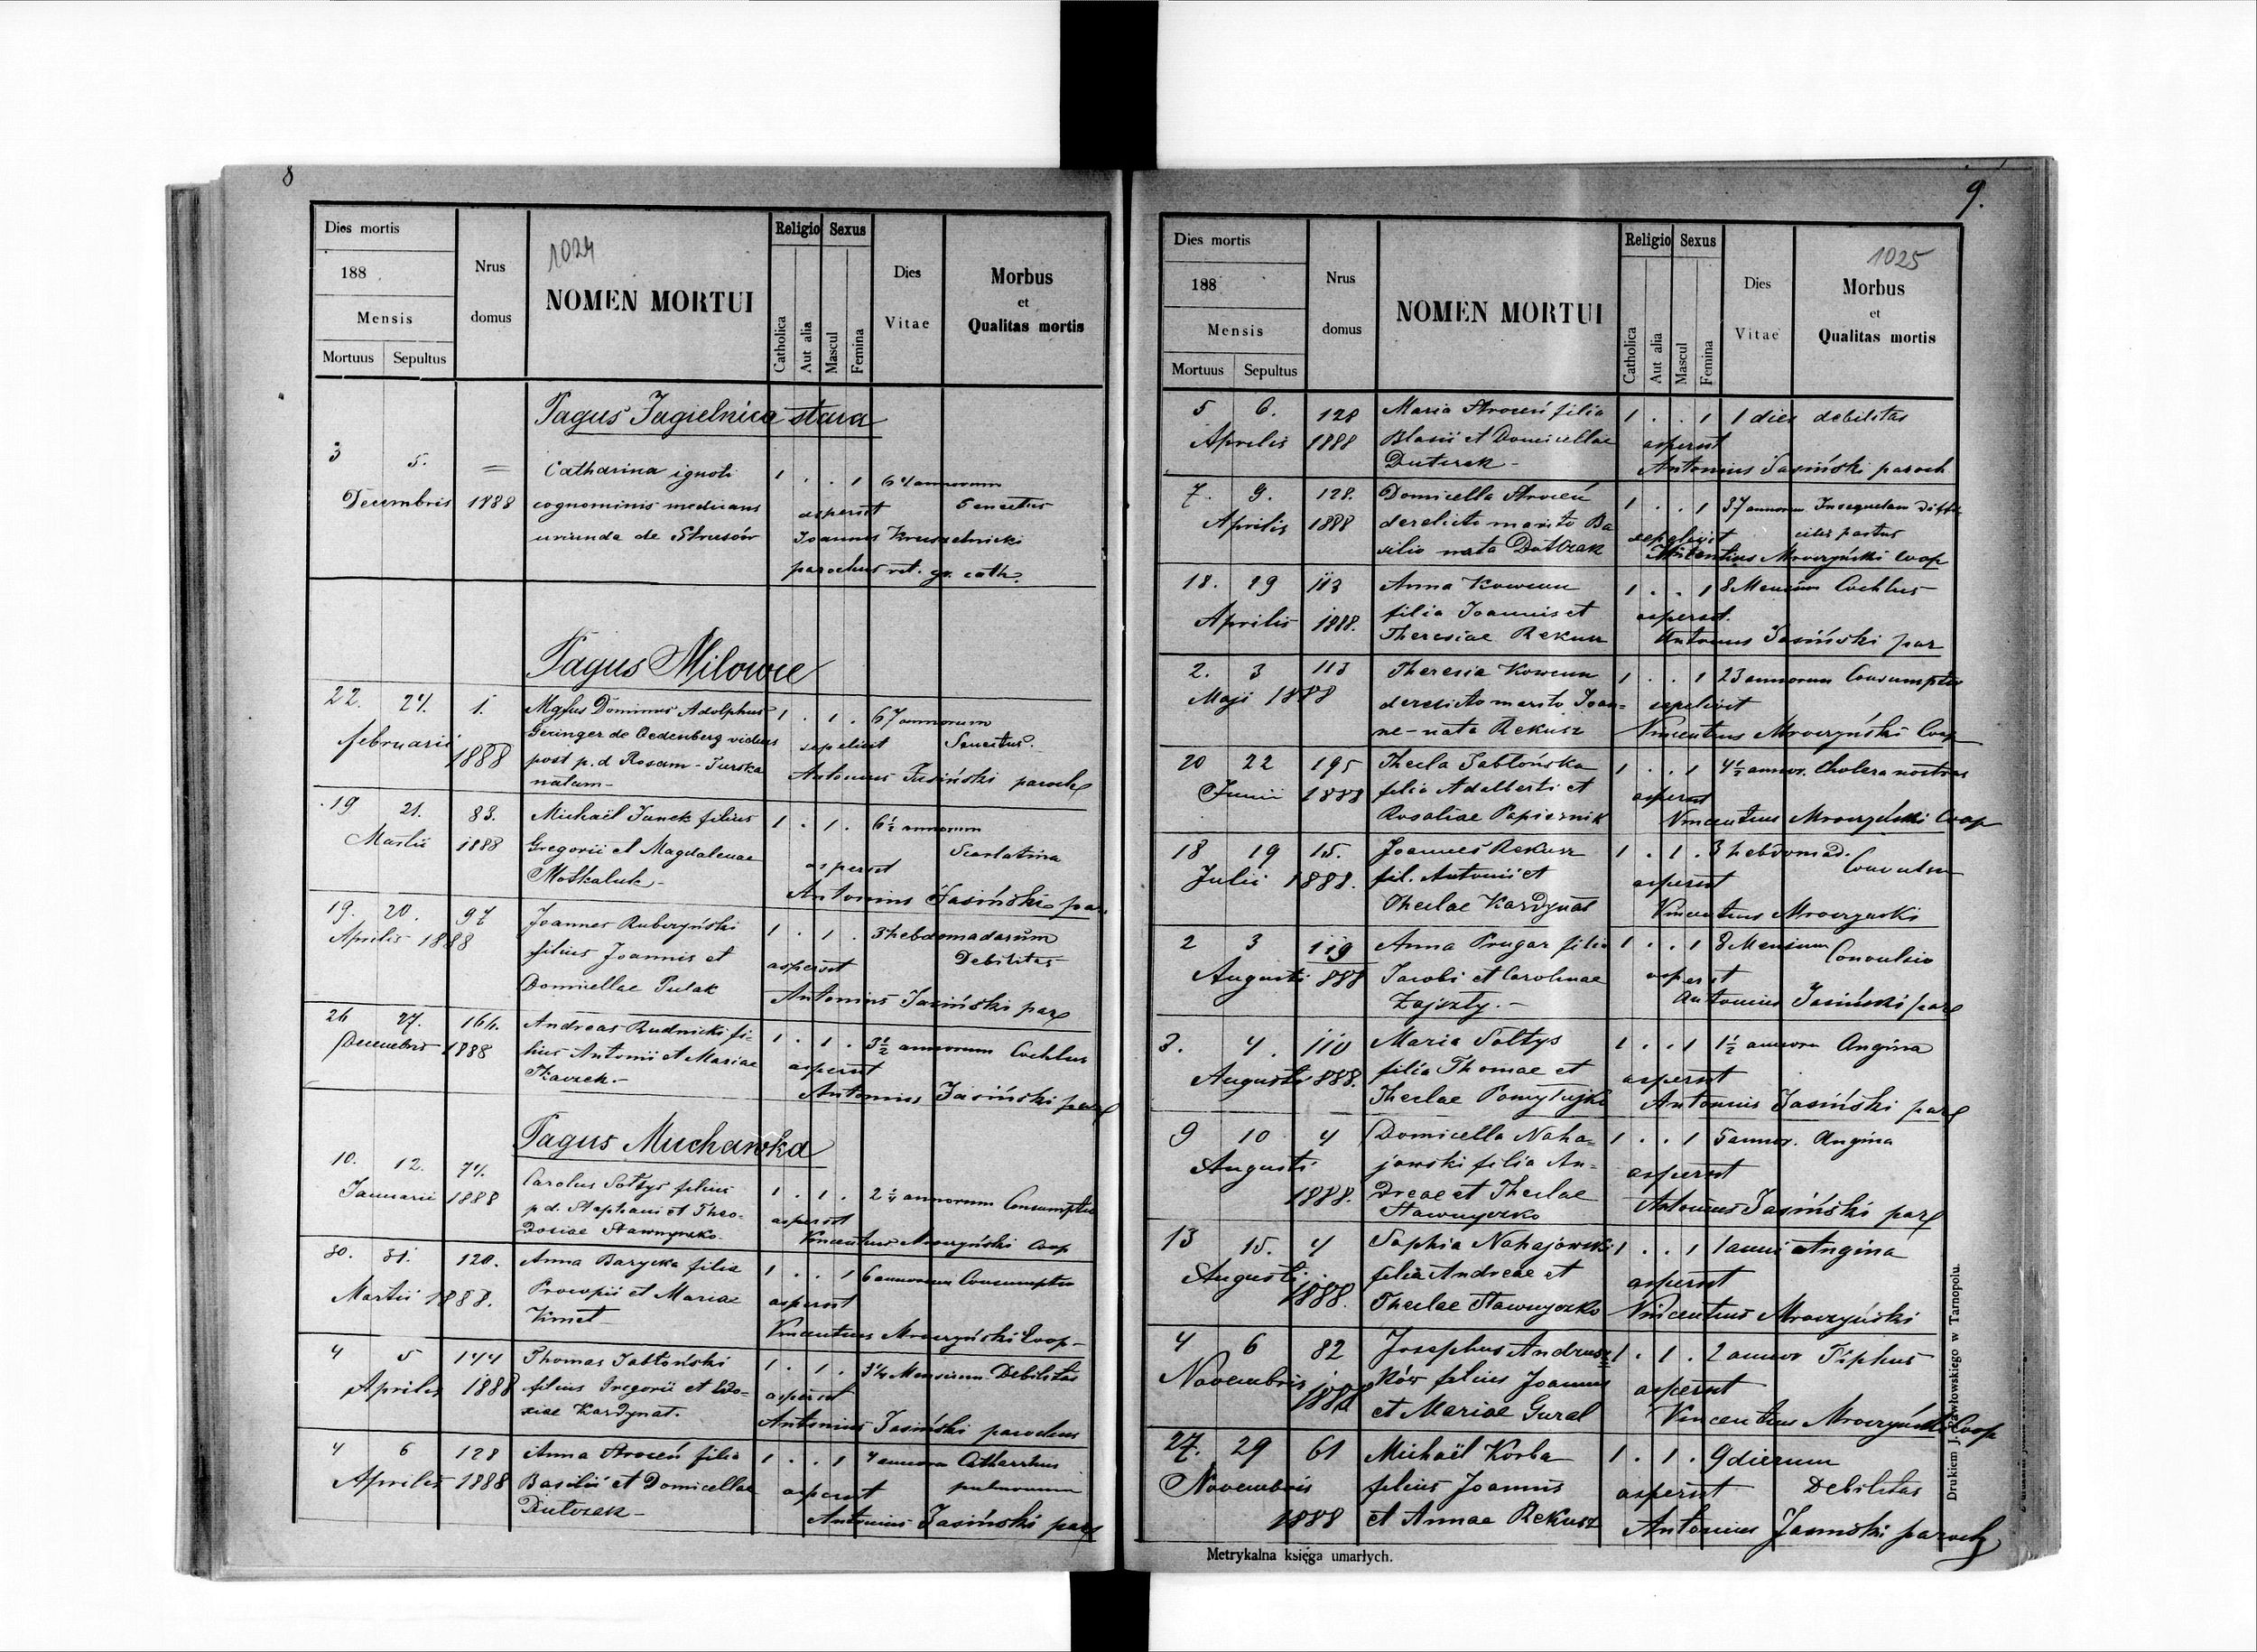 8
Dies mortis
188
Mensis
Mortuus Sepultus
Nrus
domus
1024
NOMEN MORTUI
Religio Sexus
Catholica
Aut alia
Mascul
Femina
Dies
Vitae
Morbus
et
Qualitas mortis
Pagus Jagielnica stara
3 5. = Catharina ignoti 1 . . 1 64 annorum
Decembris 1888 cognominis medicans aspersit Senectus
uriunda de Strusów Joannes Kruszelnicki
parochus rit. gr. cath.
Pagus Milowce
22. 24. 1. Mgfus Dominus Adolphus 1 . 1 . 67 annorum
februarii 1888 Geringer de Oedenberg viduus sepelivit Senectus.
post p. d Rosam - Turska Antonius Jasiński paroch
natam -
19 21. 83. Michaël Janek filius 1 . 1 . 6½ annorum
Martii 1888 Gregorii et Magdalenae aspersit Scarlatina
Moskaluk - Antonius Jasiński par
19. 20. 97 Joannes Ruberzyński 1 . 1 . 3 hebdomadarum
Aprilis 1888 filius Joannis et aspersit Debilitas
Domicellae Pulak Antonius Jasiński par
26 27. 164. Andreas Rudnicki fi- 1 . 1 . 3½ annorum Cochlus
Decembris 1888 lius Antonii et Mariae aspersit
Tkaczek. - Antonius Jasiński par
Pagus Muchawka
10. 12. 74. Carolus Sołtys filius 1 . 1 . 2¼ annorum Consumptio
Januarii 1888 p. d. Stephani et Theo- aspersit
dosiae Stawnyczko. Vincentius Mroczyński Coop
30. 31. 120. Anna Barycka filia 1 . . 1 6 annorum Consumptio
Martii 1888. Procopii et Mariae aspersit
Kmet - Vincentius Mroczyński Coop -
4 5 144 Thomas Jabłoński 1 . 1 . 3¼ Mensium Debilitas
Aprilis 1888 filius Gregorii et Eudo- aspersit
xiae Kardynał. Antonius Jasiński parochus
4 6 128 Anna Stroceń filia 1 . . 1 4 annorum Catharrhus
Aprilis 1888 Basilii et Domicellae aspersit pulmonum
Dutczak - Antonius Jasiński par
9.
Dies mortis
188
Mensis
Mortuus Sepultus
Nrus
domus
NOMEN MORTUI
Religio Sexus
Catholica
Aut alia
Mascul
Femina
Dies
Vitae
1025
Morbus
et
Qualitas mortis
5 6. 128 Maria Stroceń filia 1 . . 1 1 dies debilitas
Aprilis 1888 Blasii et Domicellae aspersit
Dutczak - Antonius Jasiński paroch
7. 9. 128. Domicella Stroceń 1 . . 1 37 annorum Insequelam diffi-
Aprilis 1888 derelicto marito Ba sepelivit cilis partus
silio nata Dutczak Vincentius Mroczyński Coop
18. 19 113 Anna Kowcun 1 . . 1 8 Mensium Cochlus
Aprilis 1888. filia Joannis et aspersit.
Theresiae Rekusz Antonius Jasiński par
2. 3 113 Theresia Kowcun 1 . . 1 23 annorum Consumptio
Maji 1888 derelicto marito Joan- sepelivit
ne - nata Rekusz Vincentius Mroczyński Coop
20 22 195 Thecla Jabłońska 1 . . 1 4½ annor. Cholera nostras
Junii 1888 filia Adalberti et aspersit
Rosaliae Papiernik Vincentius Mroczyński Coop
18 19 15. Joannes Rekusz 1 . 1 . 3 hebdomad.
Julii 1888. fil. Antonii et aspersit Convulsio
Theclae Kardynał Vincentius Mroczyński
2 3 119 Anna Prugar filia 1 . . 1 8 Mensium
Augusti 888 Jacobi et Carolinae aspersit Convulsio
Zajszły. - Antonius Jasiński par
3. 4. 110 Maria Sołtys 1 . . 1 1½ annorum Angina
Augusti 888. filia Thomae et aspersit
Theclae Pomytujko Antonius Jasiński par
9 10 4 Domicella Naha- 1 . . 1 5 annor. Angina
Augusti jowski filia An- aspersit
1888. dreae et Theclae Antonius Jasiński par
Stawnyczko
13 15. 4 Sophia Nahajowski 1 . . 1 1 anni Angina
Augusti 1888. filia Andreae et aspersit
Theclae Stawnyczko Vincentius Mroczyński
4 6 82 Josephus Andrusz= 1 . 1 . 2 annor Tiphus
Novembris 1888 ków filius Joannis aspersit
et Mariae Gural Vincentius Mroczyński Coop
27. 29 61 Michaël Korba 1 . 1 . 9 dierum
Novembris filius Joannis aspersit Debilitas
1888 et Annae Rekusz Antonius Jasiński paroch
Metrykalna księga umarłych.
Drukiem J. Pawłowskiego w Tarnopolu.